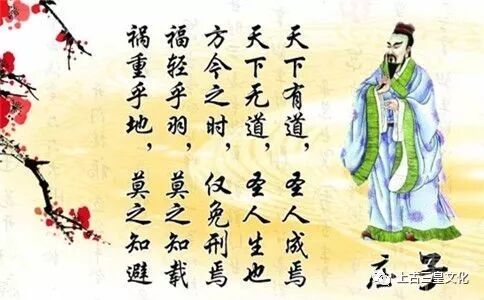 天下有道，圣人成焉
天下无道，圣人生也
方今之时，仅免刑焉
福轻乎羽，莫之知载
祸重乎地，莫之知避
庄子
上古三皇文化